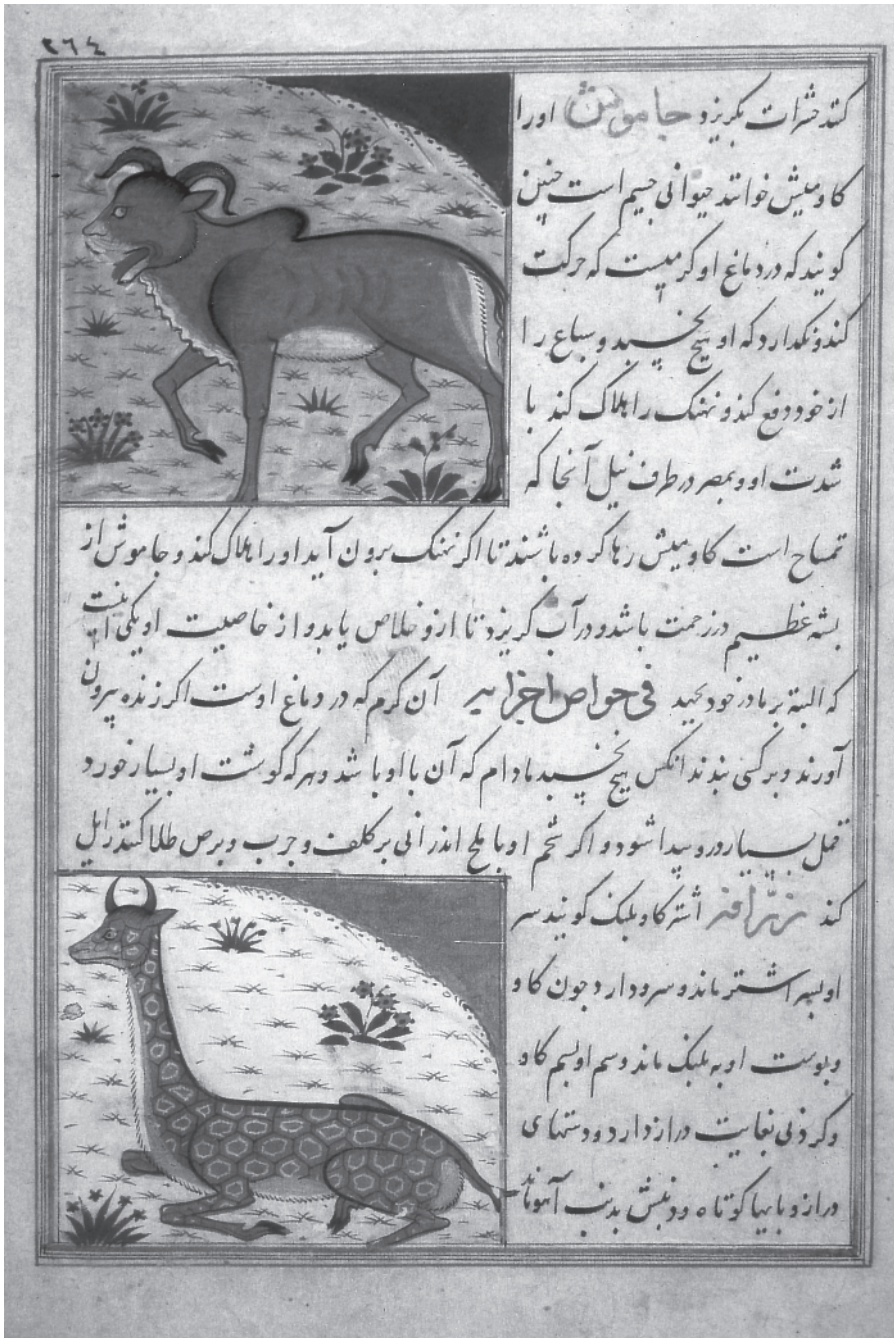 ٢٦٤
کنند حشرات بکریزد جاموش اورا
کاومیش خوانند حیوانی جسیم است چنین
کویند که در دماغ او کرمیست که حرکت
کند و نکذارد که او هیچ بخسبد و سباع را
از خود دفع کند و نهنک را هلاک کند با
شدت او و بمصر در طرف نیل آنجا که
تمساح است کاومیش رها کرده باشند تا اکر نهنک برون آید اورا هلاک کند و جاموش از
بشه عظیم در زحمت باشد و در آب کریزد تا ازو خلاص یابد و از خاصیت او یکی اینست
که البته بر مادر خود نجهد فی خواص اجزایه آن کرم که در دماغ اوست اکر زنده بیرون
آورند و بر کسی بندند آنکس هیچ نخسبد مادام که آن با او باشد و هر که کوشت او بسیار خورد
قمل بسیار درو پیدا شود و اکر شحم او با ملح اندرانی بر کلف و جرب و برص طلا کنند زایل
کند زرافه اشتر کاو پلنک کویند سر
او بسر اشتر ماند و سرو دارد جون کاو
و بوست او به پلنک ماند و سم او بسم کاو
و کردنی بغایت دراز دارد و دستهای
دراز و پایها کوتاه و دنبش بدنب آهو ماند